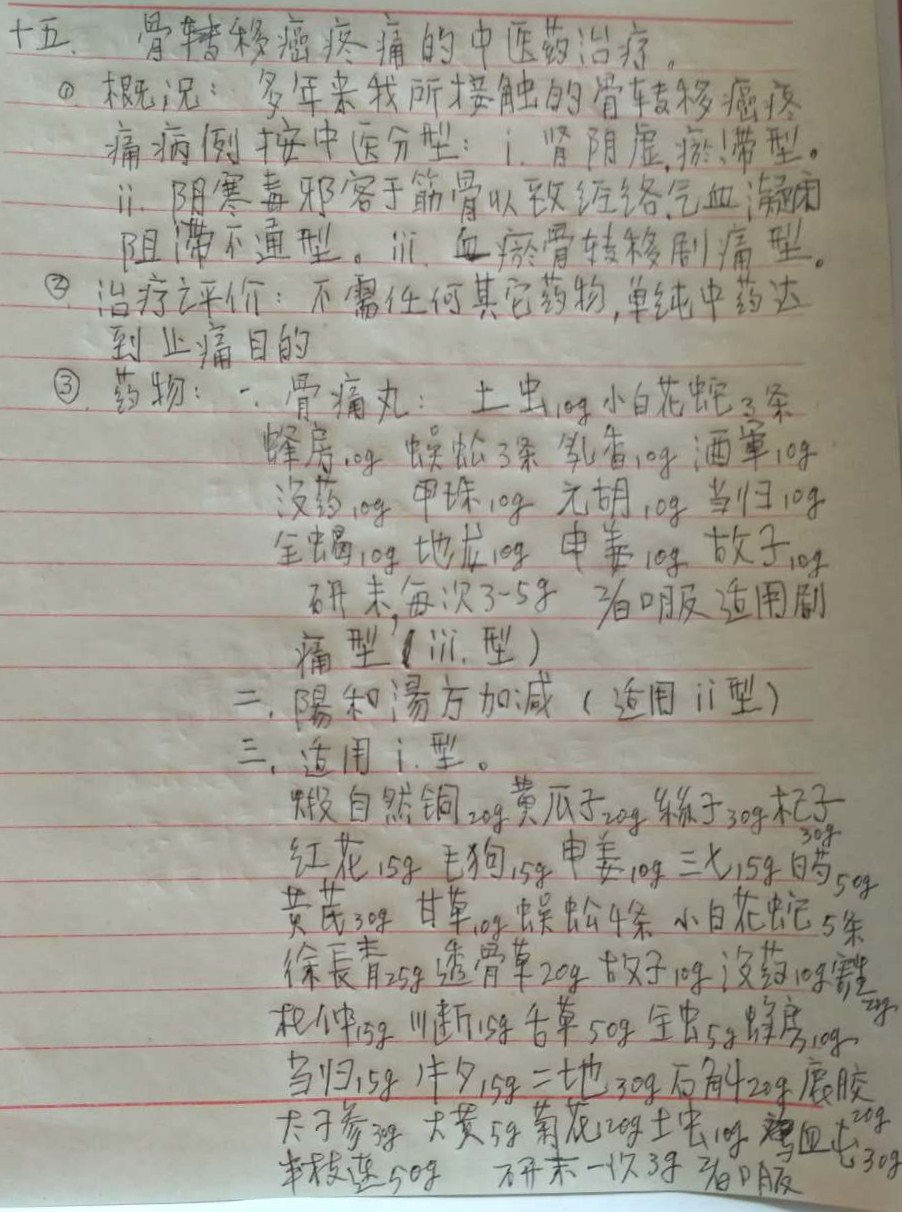 十五、骨转移癌疼痛的中医药治疗。
① 概况：多年来我所接触的骨转移癌疼
痛病例按中医分型：i. 肾阴虚，瘀滞型。
ii. 阴寒毒邪客于筋骨以致经络气血凝闭
阻滞不通型。iii. 血瘀骨转移剧痛型。
② 治疗评价：不需任何其它药物，单纯中药达
到止痛目的
③ 药物：一. 骨痛丸：土虫10g 小白花蛇3条
蜂房10g 蜈蚣3条 乳香10g 酒军10g
没药10g 甲珠10g 元胡10g 当归10g
全蝎10g 地龙10g 申姜10g 故子10g
研末，每次3-5g 2/日口服 适用剧
痛型（iii.型）
二. 陽和湯方加减（适用ii型）
三. 适用i.型。
煅自然铜20g 黄瓜子20g 絲子30g 杞子30g
红花15g 毛狗15g 申姜10g 三七15g 白芍50g
黄芪30g 甘草10g 蜈蚣4条 小白花蛇5条
徐長青25g 透骨草20g 故子10g 没药10g
杜仲15g 川断15g 舌草50g 全虫5g 蜂房10g
当归15g 牛夕15g 二地30g 石斛20g 鹿胶20g
太子参30g 大黄5g 菊花20g 土虫10g 血屯30g
半枝连50g 研末一次3g 2/日口服